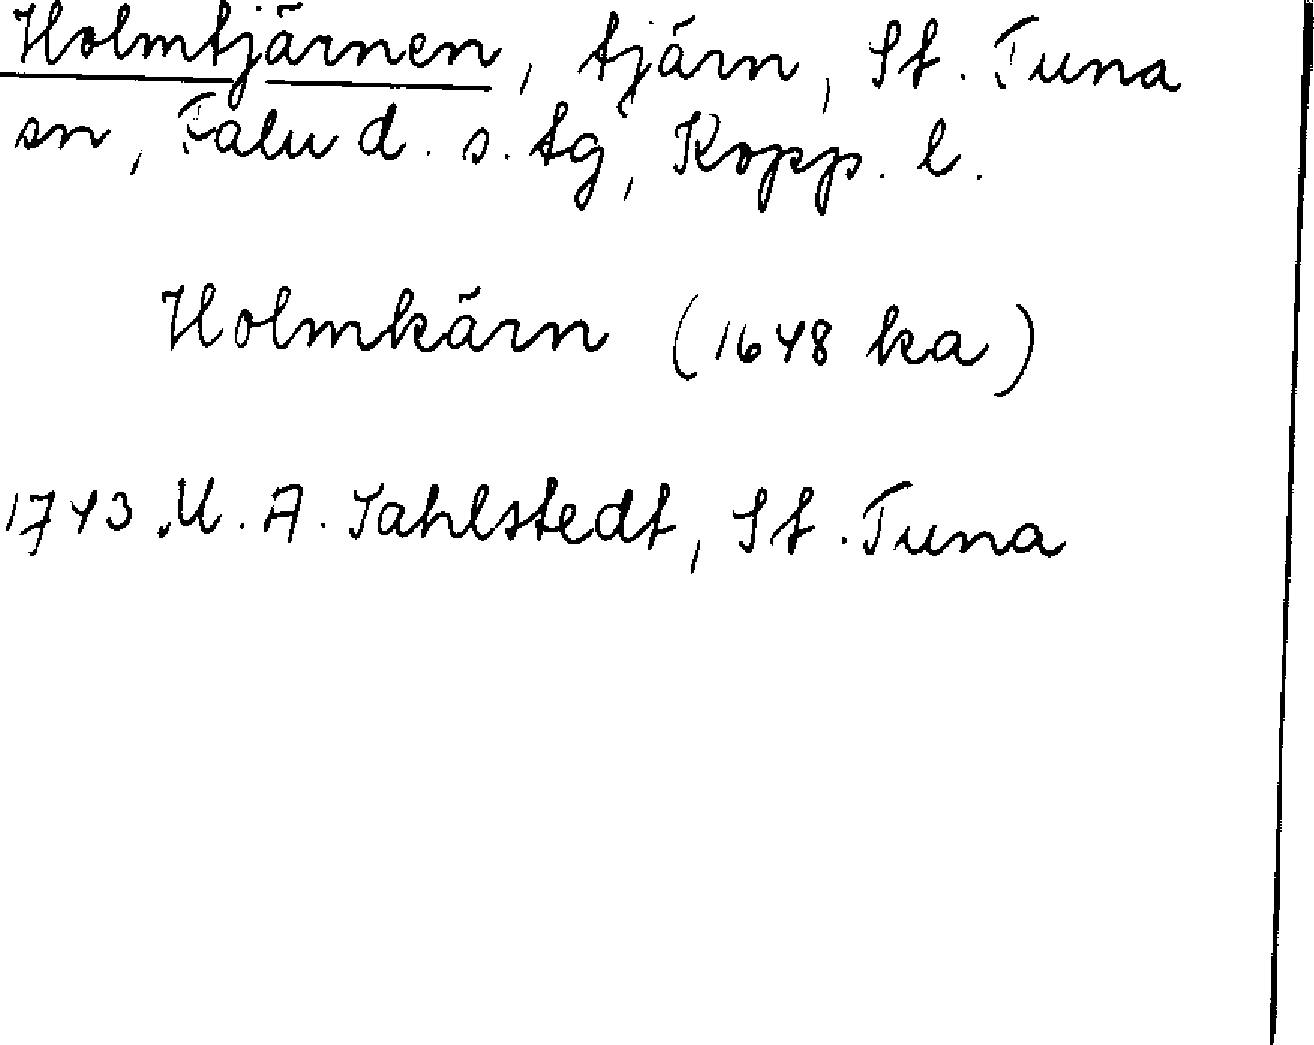 Holmtjärnen, tjärn, St. Tuna
sn, Falu d. s. tg, Kopp. l.
Holmkärn (1648 ka)
1743 M. A. Sahlstedt, St. Tuna